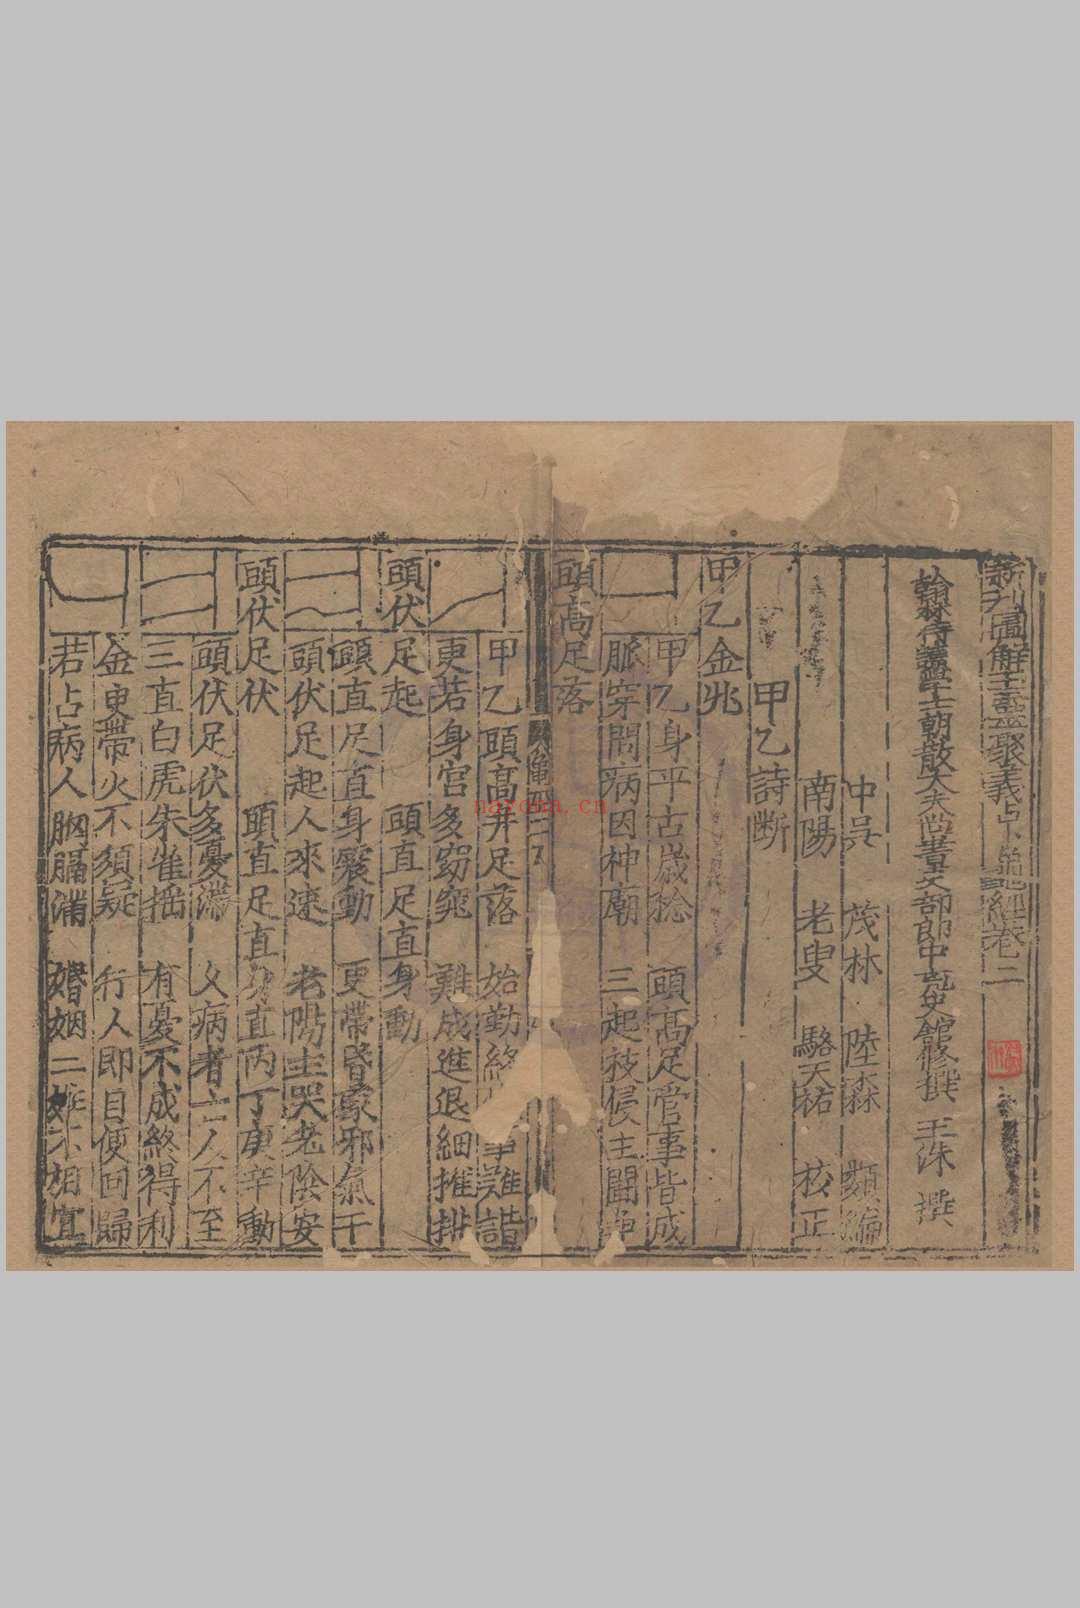 新刊圖解玉靈聚義占卜龜經卷二
翰林侍講學士朝散大夫尚書文部郎中克史館修撰 王洙 撰
中吳 茂林 陸森 類編
南陽 老叟 駱天祐 校正
甲乙詩断
甲乙金兆
甲乙身平古歲稔 頭高足管事皆成
脈穿閙病因神廟 三起被侵主鬪争
頭高足落
甲乙頭高并足落 始勤終 事難諧
更若身宮多窈窕 難成進退細推排
頭伏足起 頭直足直身動
頭直足直身震動 更帶昏蒙邪氣干
頭伏足起人來速 老陽主哭老陰安
頭伏足伏 頭直足直身直丙丁庚辛動
頭伏足伏多憂滯 父病者亡人不至
三直白虎朱雀揺 有憂不成終得利
金更帶火不須疑 行人即目便回歸
若占病人胸膈滿 婚姻二姓不相宜
naxona.cn